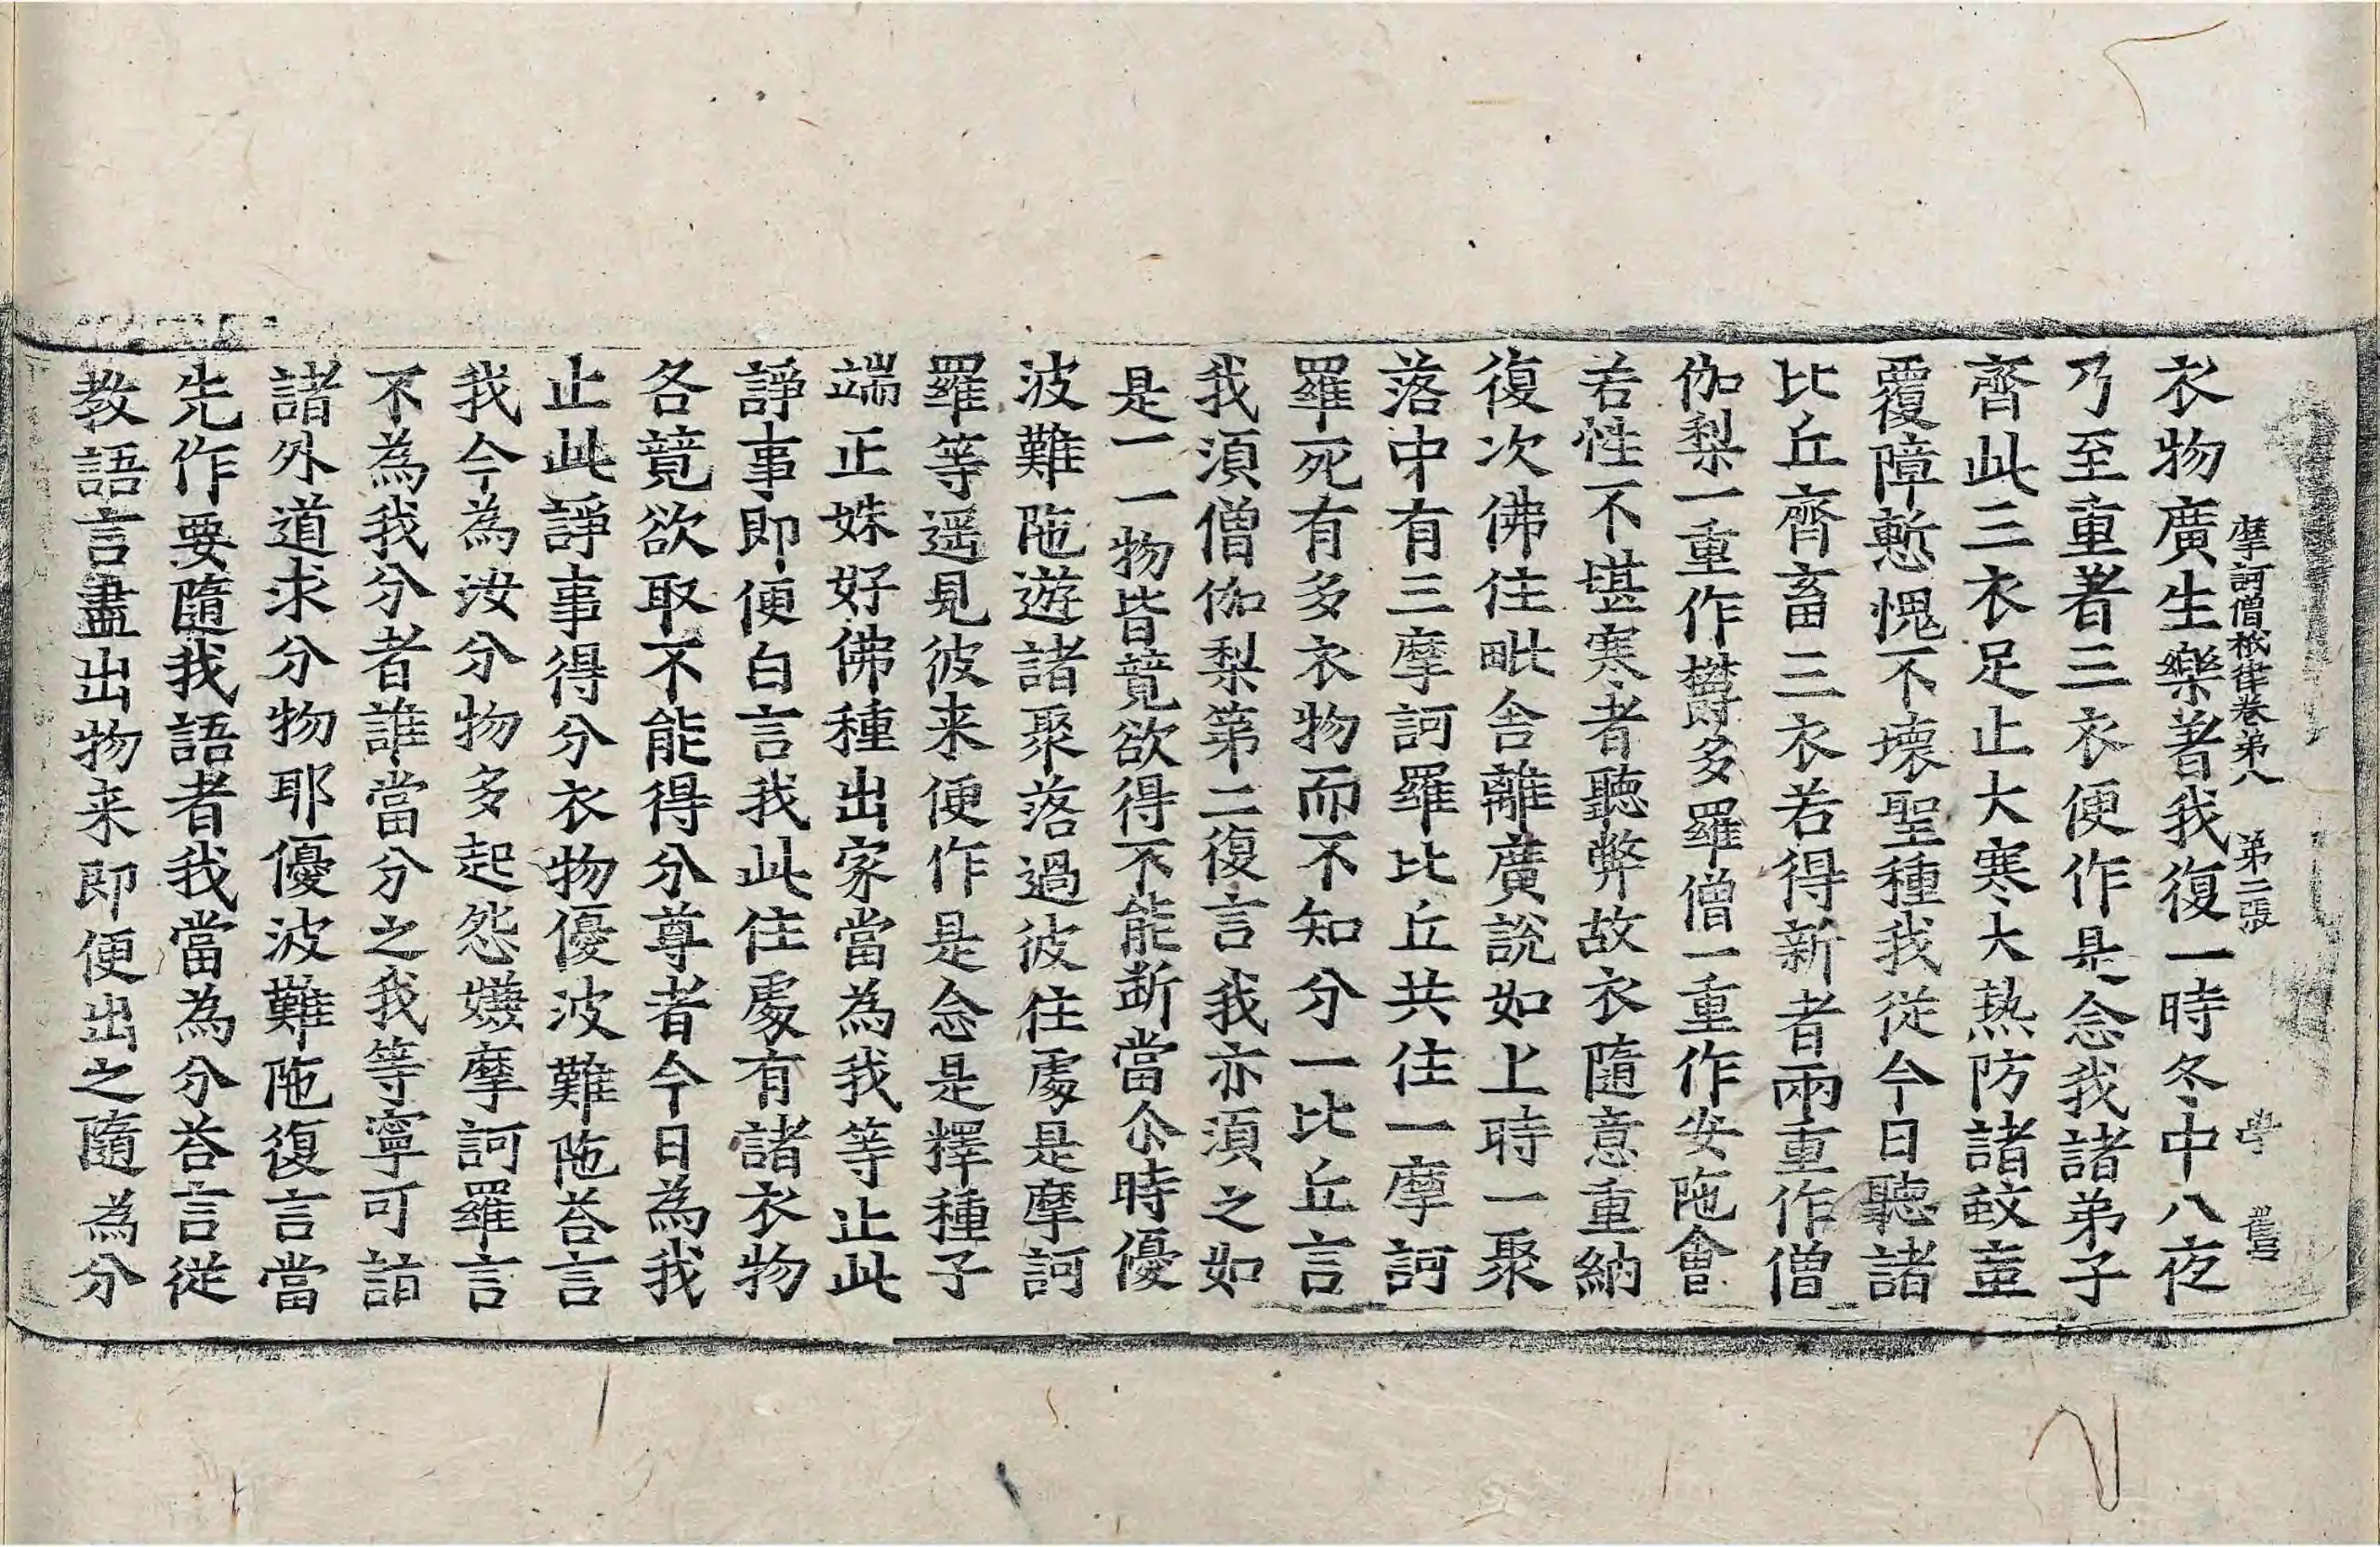 摩訶僧祇律卷第八 第二張 學 舊
衣物廣生樂著我復一時冬中八夜
乃至重著三衣便作是念我諸弟子
齊此三衣足止大寒大熱防諸蚊䖟
覆障慙愧不壞聖種我從今日聽諸
比丘齊畜三衣若得新者兩重作僧
伽梨一重作欝多羅僧一重作安陁會
若性不堪寒者聽弊故衣隨意重納
復次佛住毗舍離廣說如上時一聚
落中有三摩訶羅比丘共住一摩訶
羅死有多衣物而不知分一比丘言
我湏僧伽梨第二復言我亦湏之如
是一一物皆竟欲得不能断當尒時優
波難陁遊諸聚落過彼住處是摩訶
羅等遥見彼来便作是念是擇種子
端正姝好佛種出家當為我等止此
諍事即便白言我此住處有諸衣物
各竟欲取不能得分尊者今日為我
止此諍事得分衣物優波難陁荅言
我今為汝分物多起怨嫌摩訶羅言
不為我分者誰當分之我等寧可請
諸外道求分物耶優波難陁復言當
先作要隨我語者我當為分荅言從
教語言盡出物来即便出之隨為分